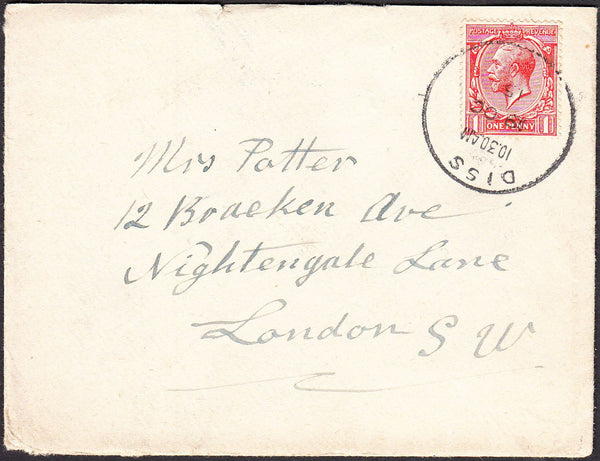 POSTAGE REVENUE
1 ONE PENNY 1
10.30 AM
DISS
Mrs Potter
12 Broeken Ave
Nightengale Lane
London S W